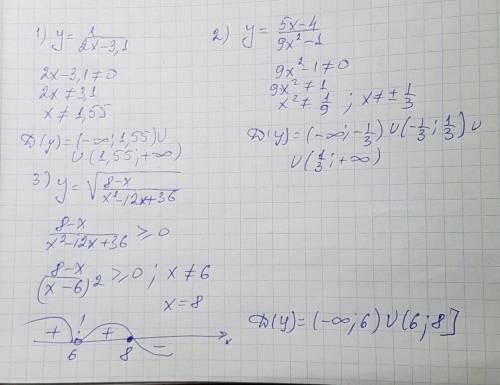 1) y = 1/(2x-3,1)
2x-3,1≠0
2x≠3,1
x≠1,55
D(y)=(-∞;1,55)∪
∪(1,55;+∞)
2) y = (5x-4)/(9x²-1)
9x²-1≠0
9x²≠1
x²≠1/9 ; x≠±1/3
D(y)=(-∞;-1/3)∪(-1/3;1/3)∪
∪(1/3;+∞)
3) y=√((8-x)/(x²-12x+36))
(8-x)/(x²-12x+36) ≥0
(8-x)/(x-6)² ≥0 ; x≠6
x=8
+ + -
6 8 x
D(y)=(-∞;6)∪(6;8]